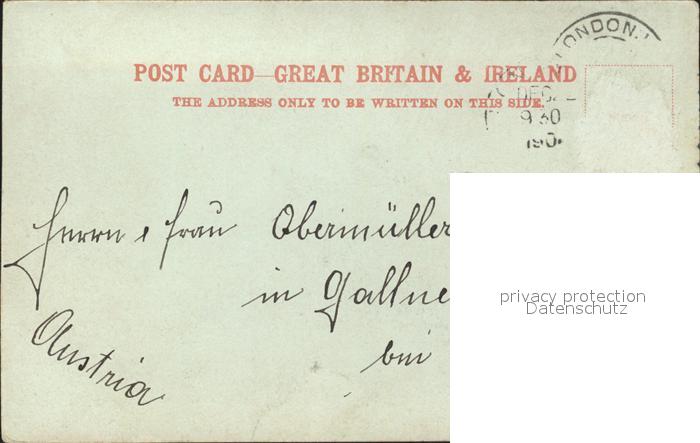 LONDON.
POST CARD—GREAT BRITAIN & IRELAND
THE ADDRESS ONLY TO BE WRITTEN ON THIS SIDE.
DEC
9 30
190
Herrn & Frau Obermüller
in Gallne
bei
Austria
privacy protection
Datenschutz